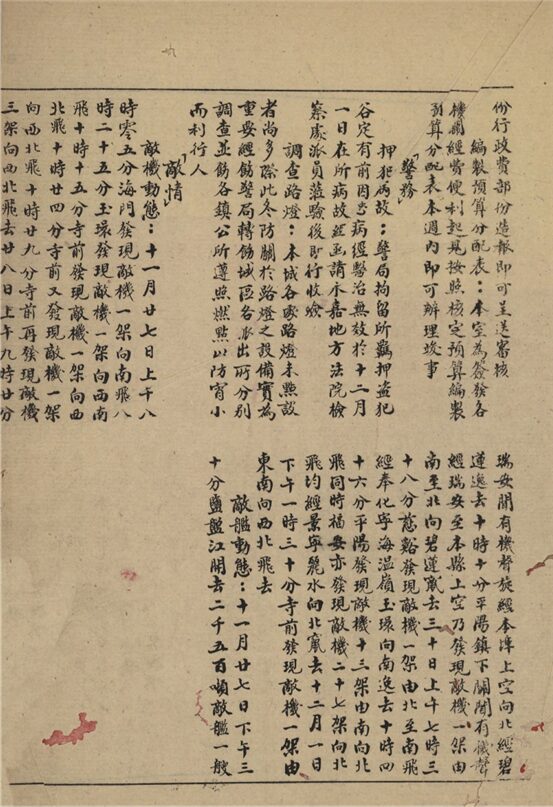 份行政費部份造報即可呈送審核
編製預算分配表：本室為簽發各
機關經費便利起見按照核定預算編製
預算分配表本週內即可辦理竣事
「警務」
押犯病故：警局拘留所羈押盜犯
谷定有前因患病經醫治無效於十二月
一日在所病故經函請永嘉地方法院檢
察處派員蒞驗後即行收殮
調查路燈：本城各處路燈未點設
者尚多際此冬防關於路燈之設備實為
重要經飭警局轉飭城區各派出所分別
調查並飭各鎮公所遵照燃點以防宵小
而利行人
「敵情」
敵機動態：十一月廿七日上午八
時零五分海門發現敵機一架向南飛八
時二十五分玉環發現敵機一架向西南
飛十時十五分寺前發現敵機一架向西
北飛十時廿四分寺前又發現敵機一架
向西北飛十時廿九分寺前再發現敵機
三架向西北飛去廿八日上午九時廿分
瑞安聞有機聲旋經本津上空向北經碧
遵逸去十時十分平陽鎮下關聞有機聲
經瑞安至本縣上空乃發現敵機一架由
南至北向碧蓮竄去三十日上午七時三
十八分慈谿發現敵機一架由北至南飛
經奉化寧海溫嶺玉環向南逸去十時四
十六分平陽發現敵機十三架由南向北
飛同時福安亦發現敵機二十七架向北
飛均經景寧麗水向北竄去十二月一日
下午一時三十分寺前發現敵機一架由
東南向西北飛去
敵艦動態：十一月廿七日下午三
十分鹽盤江開去二千五百噸敵艦一艘